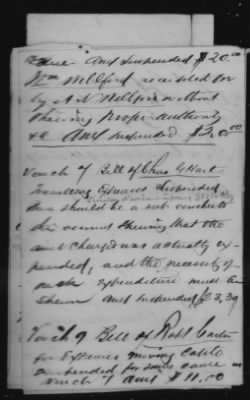 Amt Suspended $20.00
Wm Wellford receipted for
by A N Wellford without
Shewing Proper authority
&c Amt Suspended $3.00
Vouch 7 Bill of Chas G Hall
Travelling Expenses Suspended
should be a sub voucher
account Shewing that the
amt charged was actually ex-
pended, and the necessity of
such expenditure must be
Shewn Amt Suspended
Vouch 9 Bill of Robt Carter
for Expenses moving Cattle
Suspended for same cause as
Vouch 7 Amt $11.00